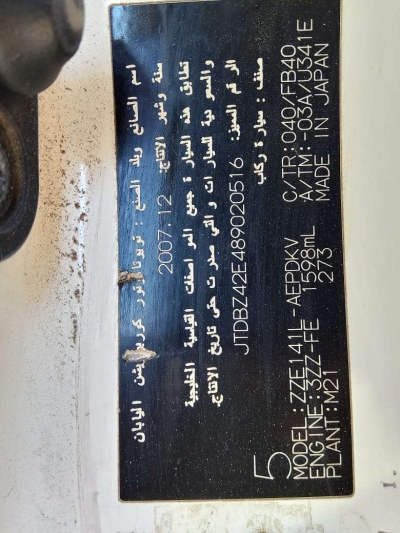 اسم الصانع وبلد الصنع : تويوتا موتور كوربوريشن اليابان
سنة وشهر الانتاج: 2007.12
تطابق هذه السيارة جميع المواصفات القياسية الخليجية
والسعودية للسيارات والتي صدرت حتى تاريخ الانتاج.
الرقم المميز: JTDBZ42E489020516
صنف : سيارة ركاب
5
MODEL: ZZE141L-AEPDKV C/TR: 040/FB40
ENGINE: 3ZZ-FE 1598mL A/TM: -03A/U341E
PLANT: M21 273 MADE IN JAPAN